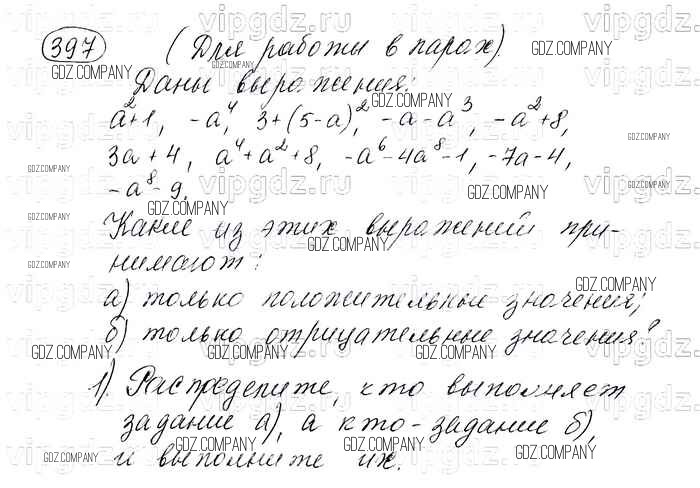 397 (Для работы в парах).
Даны выражения:
a²+1, -a⁴, 3+(5-a)², -a-a³, -a²+8,
3a+4, a⁴+a²+8, -a⁶-4a⁸-1, -7a-4,
-a⁸-9.
Какие из этих выражений при-
нимают:
а) только положительные значения;
б) только отрицательные значения?
1) Распределите, кто выполняет
задание а), а кто - задание б),
и выполните их.